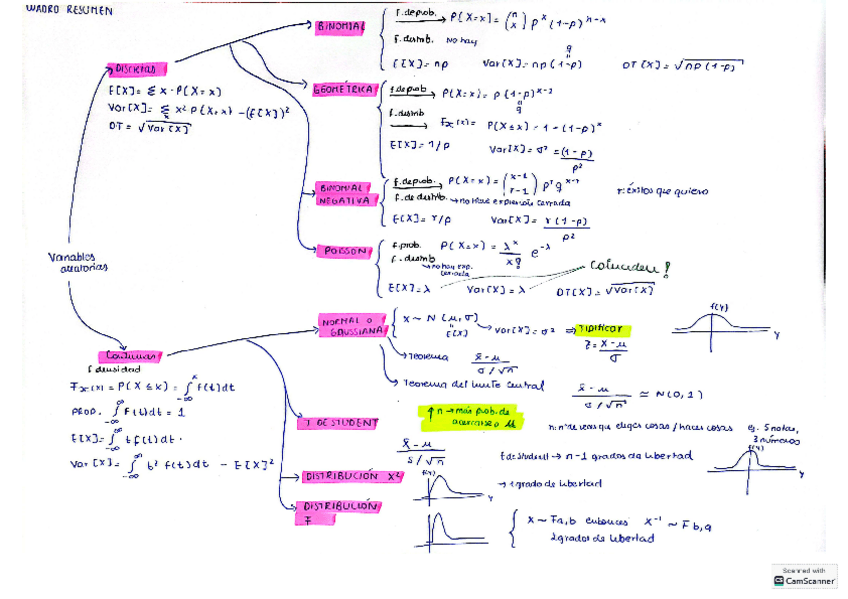 WADRO RESUMEN
Variables aleatorias
DISCRETAS
E[X] = Σ x · P(X=x)
Var[X] = Σ x² P(X=x) - (E[X])²
DT = √Var[X]
BINOMIAL
f. de prob. → P(X=x) = (n x) p^x (1-p)^(n-x)
f. distrib. No hay
q
E[X] = np Var[X] = np(1-p) DT[X] = √np(1-p)
GEOMÉTRICA
f. de prob → P(X=x) = p(1-p)^(x-1)
q
f. distrib → Fx(x) = P(X≤x) = 1-(1-p)^x
E[X] = 1/p Var[X] = σ² = (1-p)/p²
BINOMIAL NEGATIVA
f. de prob. → P(X=x) = (x-1 r-1) p^r q^(x-r) r: éxitos que quiero
f. de distrib. → no tiene expresión cerrada
E[X] = r/p Var[X] = r(1-p)/p²
POISSON
f. prob. P(X=x) = λ^x/x! e^-λ
f. distrib → no hay exp. cerrada
coinciden!
E[X] = λ Var[X] = λ DT[X] = √Var[X]
Continuas
f densidad
Fx(x) = P(X≤x) = ∫_-∞^x f(t)dt
PROP. ∫_-∞^∞ f(t)dt = 1
E[X] = ∫_-∞^∞ t f(t)dt
Var[X] = ∫_-∞^∞ t² f(t)dt - E[X]²
NORMAL O GAUSSIANA
X ~ N(μ,σ) → Var[X] = σ² ⇒ TIPIFICAR
E[X]
Z = X-μ/σ
f(x)
Y
→ Teorema x̄-μ/σ/√n
→ Teorema del límite central x̄-μ/σ/√n ≃ N(0,1)
↑ n → más prob. de acercarse a μ
n: nº de veces que eliges cosas / haces cosas eg. 5 notas, 3 números
T DE STUDENT
x̄-μ/s/√n
t de student → n-1 grados de libertad
f(x)
Y
DISTRIBUCIÓN X²
f(x)
Y
→ 1 grado de libertad
DISTRIBUCIÓN F
X ~ Fa,b entonces X⁻¹ ~ F b,a
2 grados de libertad
Scanned with
CS CamScanner